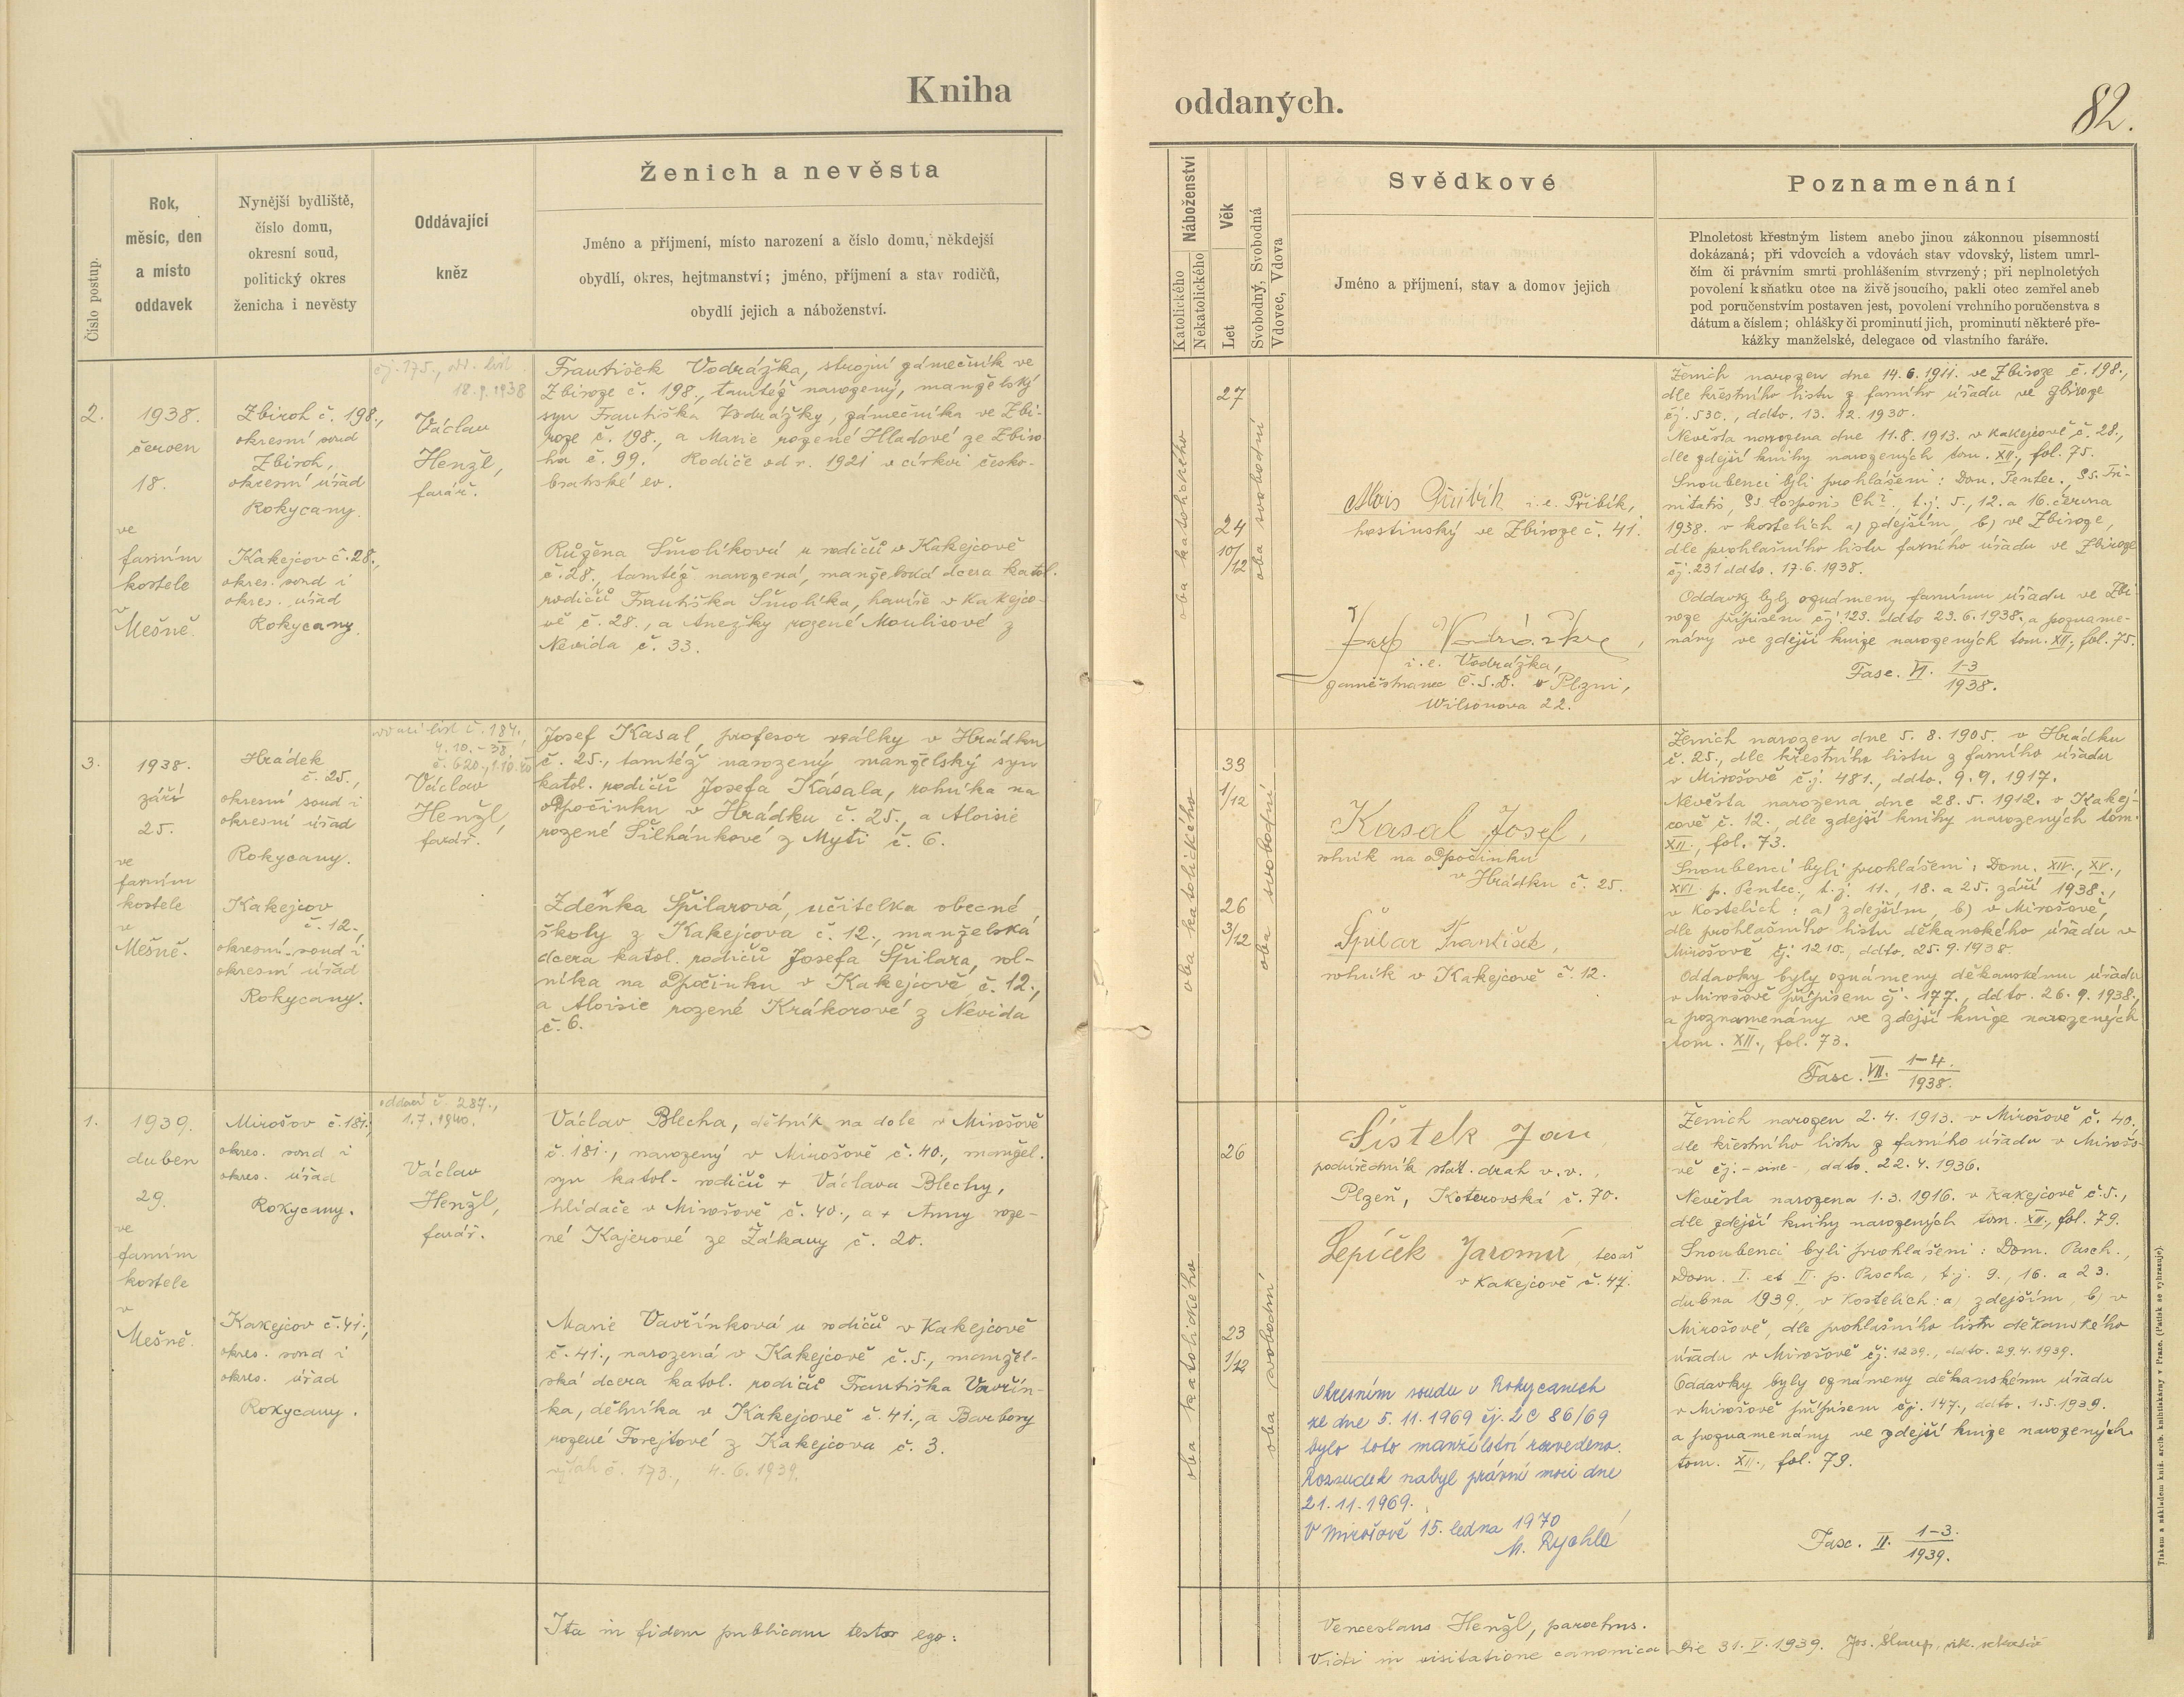 Kniha
oddaných.
82.
Číslo postup.
Rok,
měsíc, den
a místo
oddavek
Nynější bydliště,
číslo domu,
okresní soud,
politický okres
ženicha i nevěsty
Oddávající
kněz
Ženich a nevěsta
Jméno a příjmení, místo narození a číslo domu, někdejší
obydlí, okres, hejtmanství; jméno, příjmení a stav rodičů,
obydlí jejich a náboženství.
Náboženství
Katolického
Nekatolického
Věk
Let
Svobodný, Svobodná
Vdovec, Vdova
Svědkové
Jméno a příjmení, stav a domov jejich
Poznamenání
Plnoletost křestným listem anebo jinou zákonnou písemností
dokázaná; při vdovcích a vdovách stav vdovský, listem umrl-
čím či právním smrti prohlášením stvrzený; při neplnoletých
povolení k sňatku otce na živě jsoucího, pakli otec zemřel aneb
pod poručenstvím postaven jest, povolení vrchního poručenstva s
dátum a číslem; ohlášky či prominutí jich, prominutí některé pře-
kážky manželské, delegace od vlastního faráře.
2.
1938.
červen
18.
ve
farním
kostele
v
Mešně.
Zbiroh č. 198.,
okresní soud
Zbiroh,
okresní úřad
Rokycany.
Kakejcov č. 28.,
okres. soud i
okres. úřad
Rokycany.
čj. 175., odd. list
18.9.1938
Václav
Henžl,
farář.
František Vodrážka, strojní zámečník ve
Zbiroze č. 198., tamtéž narozený, manželský
syn Františka Vodrážky, zámečníka ve Zbi-
roze č. 198., a Marie rozené Hladové ze Zbiro-
ha č. 99. Rodiče od r. 1921 v církvi česko-
bratrské ev.
Růžena Šmolíková u rodičů v Kakejcově
č. 28., tamtéž narozená, manželská dcera katol.
rodičů Františka Šmolíka, havíře v Kakejco-
vě č. 28., a Anežky rozené Moulisové z
Nevida č. 33.
oba katolického
27
24
10/12
oba svobodní
Alois Přibík i. e. Přibík,
hostinský ve Zbiroze č. 41.
Josef Vodrážka,
i. e. Vodrážka,
zaměstnanec Č.S.D. v Plzni,
Wilsonova 22.
Ženich narozen dne 14.6.1911. ve Zbiroze č. 198.,
dle křestního listu z farního úřadu ve Zbiroze
čj. 530., ddto. 13. 12. 1930.
Nevěsta narozena dne 11.8.1913. v Kakejcově č. 28.,
dle zdejší knihy narozených tom. XII., fol. 75.
Snoubenci byli prohlášeni: Dom. Pentec., Ss. Tri-
nitatis, Ss. Corporis Chr., t.j. 5., 12. a 16. června
1938. v kostelích a) zdejším, b) ve Zbiroze,
dle prohlašního listu farního úřadu ve Zbiroze
čj. 231 ddto. 17.6.1938.
Oddavky byly oznámeny farnímu úřadu ve Zbi-
roze přípisem čj. 123. ddto 23.6.1938., a pozname-
nány ve zdejší knize narozených tom. XII., fol. 75.
Fasc. VI. 1-3
1938.
3.
1938.
září
25.
ve
farním
kostele
v
Mešně.
Hrádek
č. 25.,
okresní soud i
okresní úřad
Rokycany.
Kakejcov
č. 12.,
okresní soud i
okresní úřad
Rokycany.
oddací list č. 184.,
4. 10. - 38.
č. 620., 1.10.40
Václav
Henžl,
farář.
Josef Kasal, profesor reálky v Hrádku
č. 25., tamtéž narozený manželský syn
katol. rodičů Josefa Kasala, rolníka na
odpočinku v Hrádku č. 25., a Aloisie
rozené Šilhánkové z Mýti č. 6.
Zdeňka Špilarová, učitelka obecné
školy z Kakejcova č. 12., manželská
dcera katol. rodičů Josefa Špilara, rol-
níka na odpočinku v Kakejcově č. 12.,
a Aloisie rozené Krákorové z Nevida
č. 6.
oba katolického
33
1/12
26
3/12
oba svobodní
Kasal Josef,
rolník na odpočinku
v Hrádku č. 25.
Špilar František,
rolník v Kakejcově č. 12.
Ženich narozen dne 5. 8. 1905. v Hrádku
č. 25., dle křestního listu z farního úřadu
v Mirošově č.j. 481., ddto. 9. 9. 1917.
Nevěsta narozena dne 28. 5. 1912. v Kakej-
cově č. 12., dle zdejší knihy narozených tom.
XII., fol. 73.
Snoubenci byli prohlášeni: Dom. XIV., XV.,
XVI. p. Pentec., t.j. 11., 18. a 25. září 1938.,
v kostelích: a) zdejším, b) v Mirošově,
dle prohlašního listu děkanského úřadu v
Mirošově čj. 1210., ddto. 25. 9. 1938.
Oddavky byly oznámeny děkanskému úřadu
v Mirošově přípisem čj. 177., ddto. 26. 9. 1938.,
a poznamenány ve zdejší knize narozených
tom. XII., fol. 73.
Fasc. VII. 1-4.
1938.
1.
1939.
duben
29.
ve
farním
kostele
v
Mešně.
Mirošov č. 181.,
okres. soud i
okres. úřad
Rokycany.
Kakejcov č. 41.,
okres. soud i
okres. úřad
Rokycany.
oddací č. 287.,
1.7.1940.
Václav
Henžl,
farář.
Václav Blecha, dělník na dole v Mirošově
č. 181., narozený v Mirošově č. 40., manžel.
syn katol. rodičů + Václava Blechy,
hlídače v Mirošově č. 40., a + Anny roze-
né Kajerové ze Žákavy č. 20.
Marie Vavřínková u rodičů v Kakejcově
č. 41., narozená v Kakejcově č. 5., manžel-
ská dcera katol. rodičů Františka Vavřín-
ka, dělníka v Kakejcově č. 41., a Barbory
rozené Forejtové z Kakejcova č. 3.
výtah č. 173., 4. 6. 1939.
oba katolického
26
23
1/12
oba svobodní
Šístek Jan
podúředník stát. drah v. v.,
Plzeň, Koterovská č. 70.
Lepíček Jaromír, tesař
v Kakejcově č. 47.
Okresním soudu v Rokycanech
ze dne 5. 11. 1969 čj. 2 C 86/69
bylo toto manželství rozvedeno.
Rozsudek nabyl právní moci dne
21. 11. 1969.
V Mirošově 15. ledna 1970
M. Rychlá
Ženich narozen 2. 4. 1913. v Mirošově č. 40.,
dle křestního listu z farního úřadu v Mirošo-
vě čj. - sine -, ddto. 22. 4. 1936.
Nevěsta narozena 1. 3. 1916. v Kakejcově č. 5.,
dle zdejší knihy narozených tom. XII., fol. 79.
Snoubenci byli prohlášeni: Dom. Pasch.,
Dom. I. et II. p. Pascha, t.j. 9., 16. a 23.
dubna 1939., v kostelích: a) zdejším, b) v
Mirošově, dle prohlašního listu děkanského
úřadu v Mirošově čj. 1239., ddto. 29.4.1939.
Oddavky byly oznámeny děkanskému úřadu
v Mirošově přípisem čj. 147., ddto. 1.5.1939.
a poznamenány ve zdejší knize narozených
tom. XII., fol. 79.
Fasc. II. 1-3.
1939.
Ita in fidem publicam testor ego:
Venceslaus Henžl, parochus.
Vidi in visitatione canonica die 31. V. 1939. Jos.
Tiskem a nákladem kníž. arcib. knihtiskárny v Praze. (Patisk se vyhrazuje).